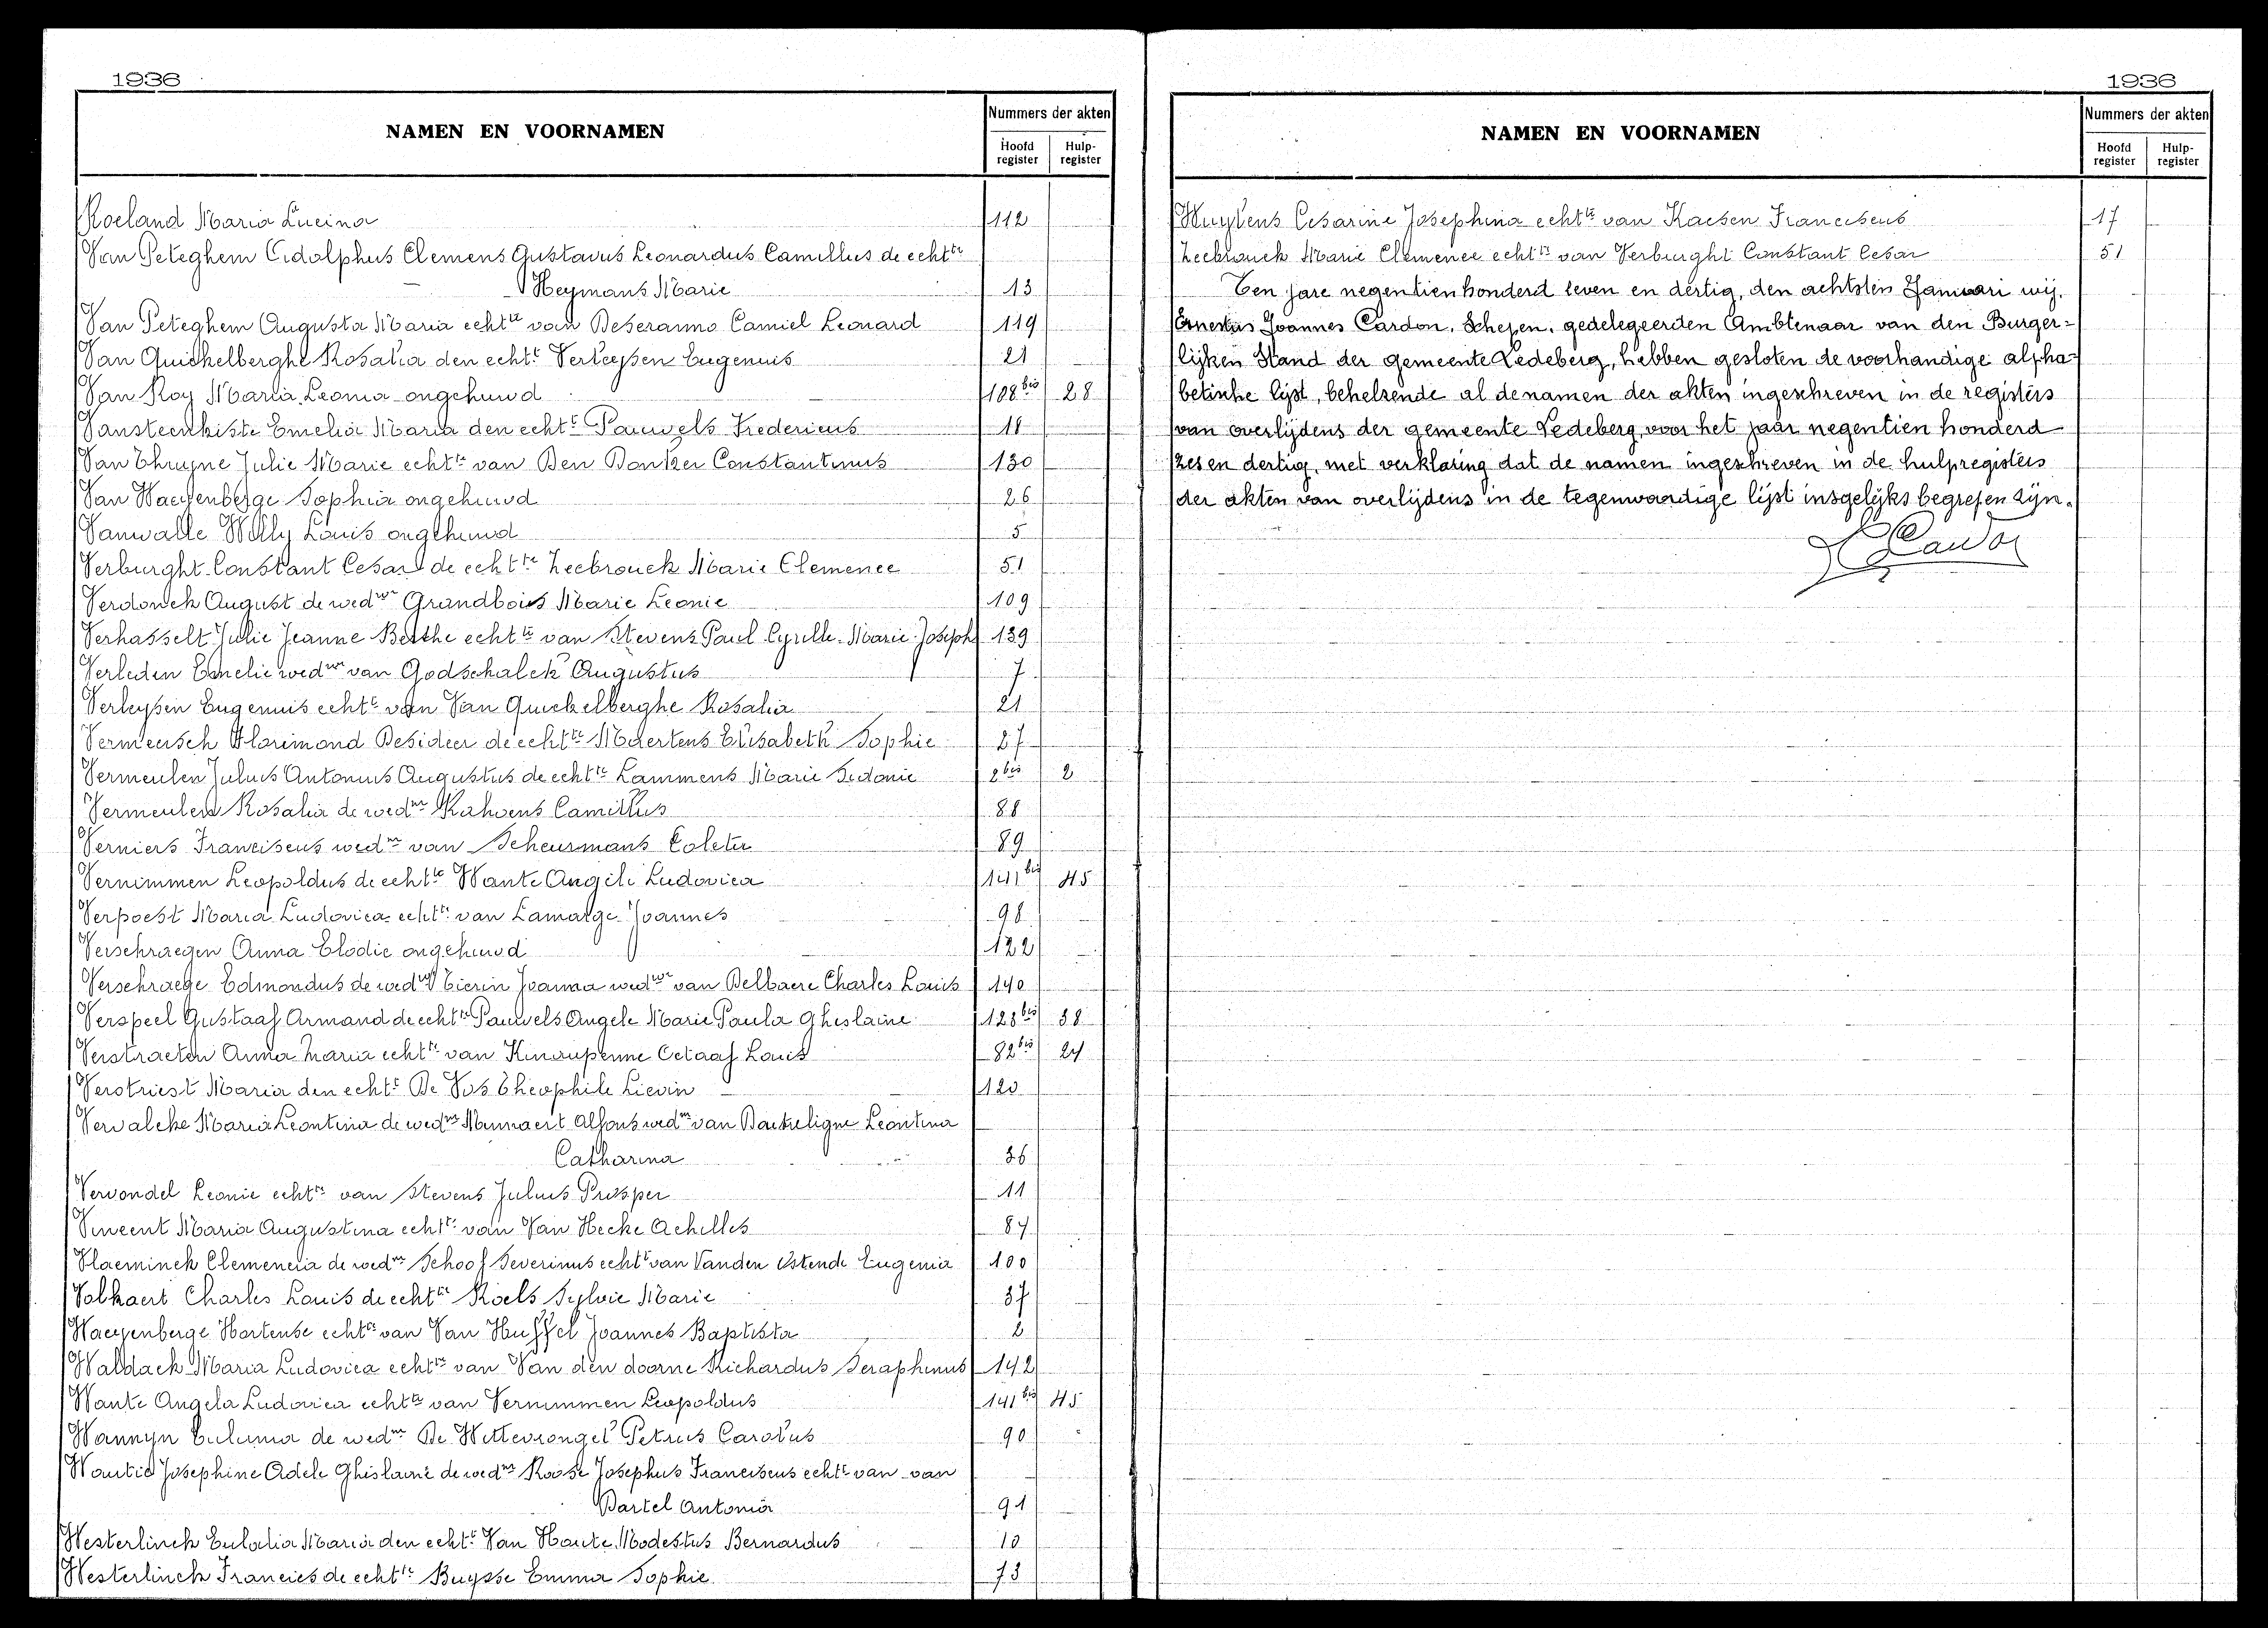 1936
NAMEN EN VOORNAMEN
Nummers der akten
Hoofd register
Hulp-register
Roeland Maria Lucina 112
Van Peteghem Adolphus Clemens Gustavus Leonardus Camillus de echtte
Heymans Marie 13
Van Peteghem Augusta Maria echtte van Deseranno Camiel Leonard 119
Van Quickelberghe Rosalia den echtt Verleysen Eugenius 21
Van Roy Maria Leonia ongehuwd 108bis 28
Vansteenkiste Emelia Maria den echtt Pauwels Fredericus 18
Van Thruyne Julie Marie echtte van Den Donker Constantinus 130
Van Waeyenberge Sophia ongehuwd 26
Vanwalle Willy Louis ongehuwd 5
Verburght Constant Cesar de echtte Zeebrouck Marie Clemence 51
Verdonck August de wedwe Grandbois Marie Leonie 109
Verhasselt Julie Jeanne Berthe echtte van Stevens Paul Cyrille Marie Joseph 139
Verleden Emelie wedwe van Godschalck Augustus 7
Verleysen Eugenius echtt van Van Quickelberghe Rosalia 21
Vermeersch Florimond Desideer de echtte Maertens Elisabeth Sophie 27
Vermeulen Julius Antonius Augustus de echtte Lammens Marie Sidonie 2bis 2
Vermeulen Rosalia de wedwe Camillus 88
Verniers Franciscus wednr van Scheursmans Coleta 89
Vernimmen Leopoldus de echtte Wante Angela Ludovica 141bis 45
Verpoest Maria Ludovica echtte van Lamarge Joannes 98
Verschraegen Anna Elodie ongehuwd 122
Verschraege Edmondus de wedwe Tierin Joanna wedwe van Delbaere Charles Louis 140
Verspeel Gustaaf Armand de echtte Pauwels Angele Marie Paula Ghislaine 123bis 38
Verstraeten Anna Maria echtte van Octaaf Louis 82bis 24
Verstriest Maria den echtt De Vos Theophile Lievin 120
Vervalcke Maria Leontina de wedwe Minnaert Alfons wednr van Leontina
Catharina 36
Vervondel Leonie echtte van Stevens Julius Prosper 11
Vincent Maria Augustina echtte van Van Hecke Achilles 87
Vlaeminck Clemencia de wednr Schoof Severinus echtt van Vanden Ostende Eugenia 100
Volkaert Charles Louis de echtte Roels Sylvie Marie 37
Waeyenberge Hortense echtte van Van Huffel Joannes Baptista 2
Waldack Maria Ludovica echtte van Van den doorne Richardus Seraphinus 142
Wante Angela Ludovica echtte van Vernimmen Leopoldus 141bis 45
Wannyn Eulema de wednr De Wittevrongel Petrus Carolus 90
Wautié Josephine Adele Ghislaine de wednr Roose Josephus Franciscus echtt van van
Bartel Antonia 91
Westerlinck Eulalia Maria den echtt Van Haute Modestus Bernardus 10
Westerlinck Francies de echtte Buysse Emma Sophie 73
1936
NAMEN EN VOORNAMEN
Nummers der akten
Hoofd register
Hulp-register
Wuytens Cesarine Josephina echtte van Kaesen Franciscus 17
Zeebrouck Marie Clemence echtte van Verburght Constant Cesar 51
Ten jare negentien honderd zeven en dertig, den achtsten Januari wij,
Ernestus Joannes Cardon, Schepen, gedelegeerden Ambtenaar van den Burger=
lijken Stand der gemeente Ledeberg, hebben gesloten de voorhandige alpha=
betische lijst, behelzende al de namen der akten ingeschreven in de registers
van overlijdens der gemeente Ledeberg, voor het jaar negentien honderd
zes en dertig, met verklaring dat de namen ingeschreven in de hulpregisters
der akten van overlijdens in de tegenwoordige lijst insgelijks begrepen zijn.
Cardon